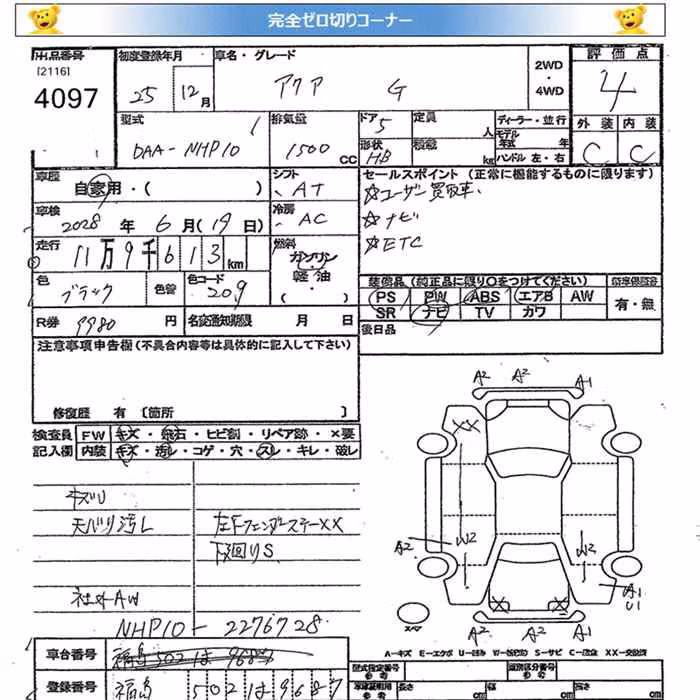 完全ゼロ切りコーナー
出品番号 初度登録年月 車名・グレード 2WD・4WD 評価点
[2116]
4097 25 12月 アクア G 4
型式 排気量 ドア 定員 人 ディーラー・並行 外装 内装
DAA-NHP10 1500cc 5 形状 HB 積載 kg モデル年式 年 ハンドル 左・右 C C
車歴 自家用・( ) シフト AT セールスポイント (正常に機能するものに限ります)
車検 2028年6月(19日) 冷房 AC ☆ユーザー買取車、
☆ナビ
☆ETC
走行 11万9千613km 燃料 ガソリン・軽油・( )
色 ブラック 色替 色コード 209
装備品 (純正品に限り○をつけてください)
PS PW ABS エアB AW 有・無
SR ナビ TV カワ
R券 9980円 名変通知期限 月 日 後日品
注意事項申告欄(不具合内容等は具体的に記入して下さい)
修復歴 有 [箇所 ]
検査員 FW キズ・飛石・ヒビ割・リペア跡・×要
記入欄 内装 キズ・汚レ・コゲ・穴・スレ・キレ・破レ
キズU
天バリ汚レ 左Fフェンダーステー××
下廻りS
社外AW
NHP10-2276728
A2 A2 A1
XX
W2 W2
A2
A1
U1
スペア
A2 A2 A1
A-キズ E-エクボ U-凹み W-波凹み S-サビ C-腐食 XX-交換済
車台番号 福島502は9687
登録番号 福島502は9687
型式指定番号 類別区分番号
参考 長さ cm 幅 cm 高さ cm